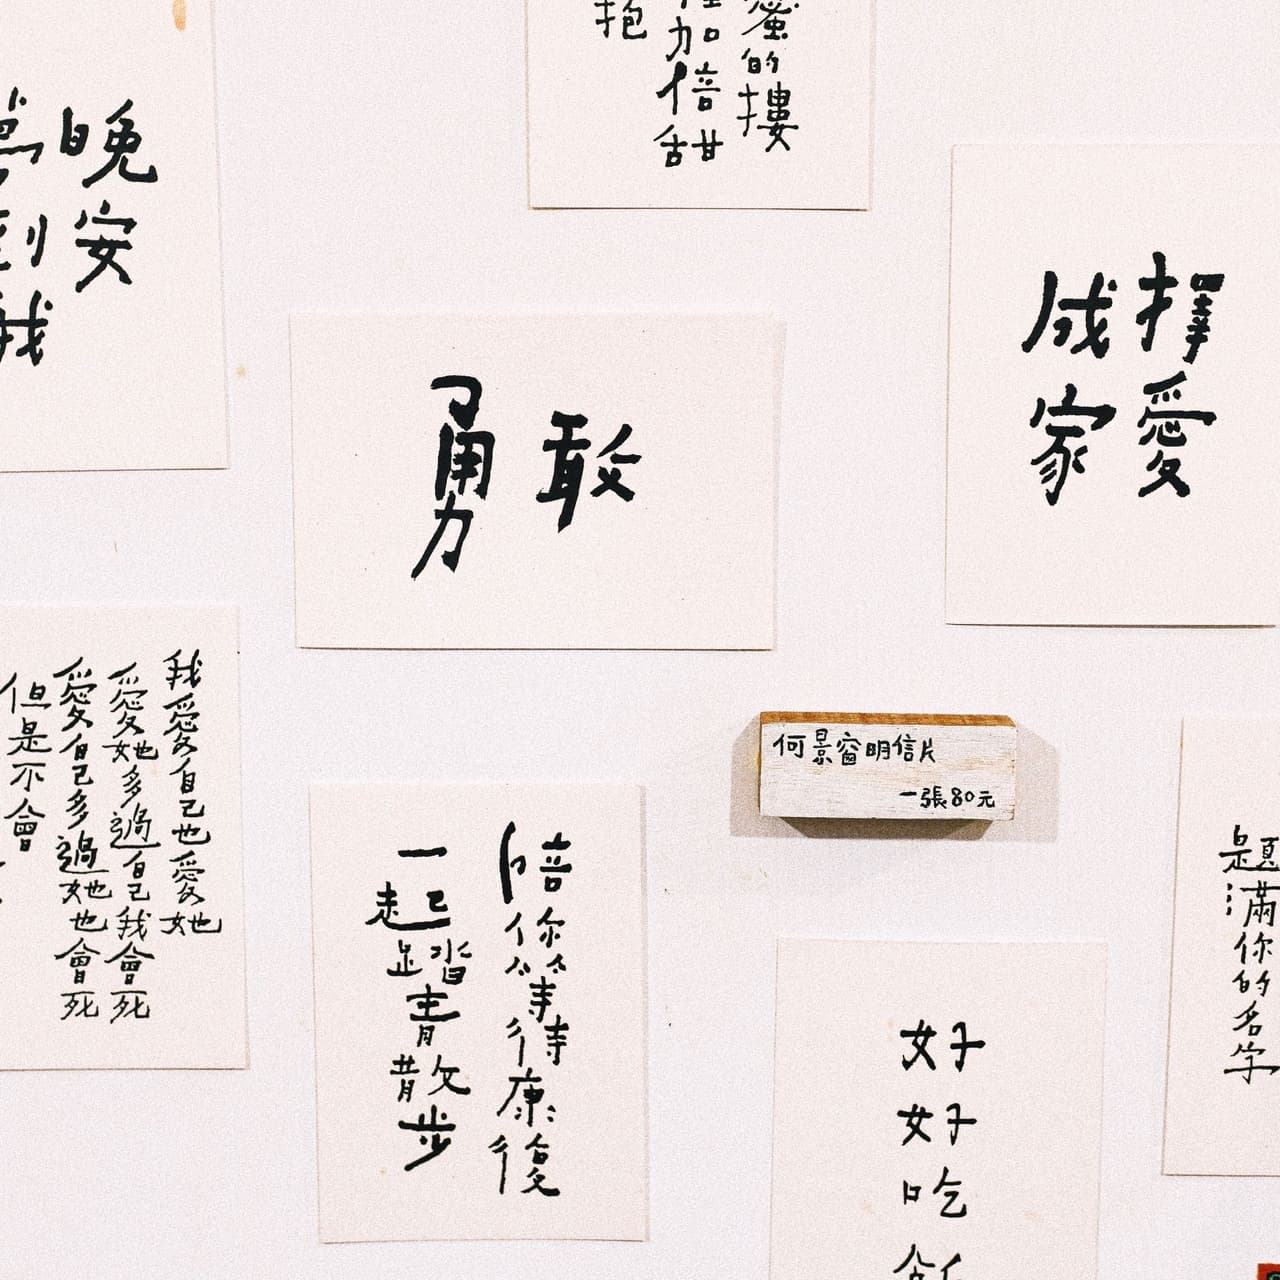 晚安
夢到我
蜜的摟
加倍甜
抱
擇愛
成家
勇敢
我愛自己也愛她
愛她多過自己我會死
愛自己多過她也會死
但是不會
何景窗明信片
一張80元
陪你等待康復
一起踏青散步
好好吃
題滿你的名字